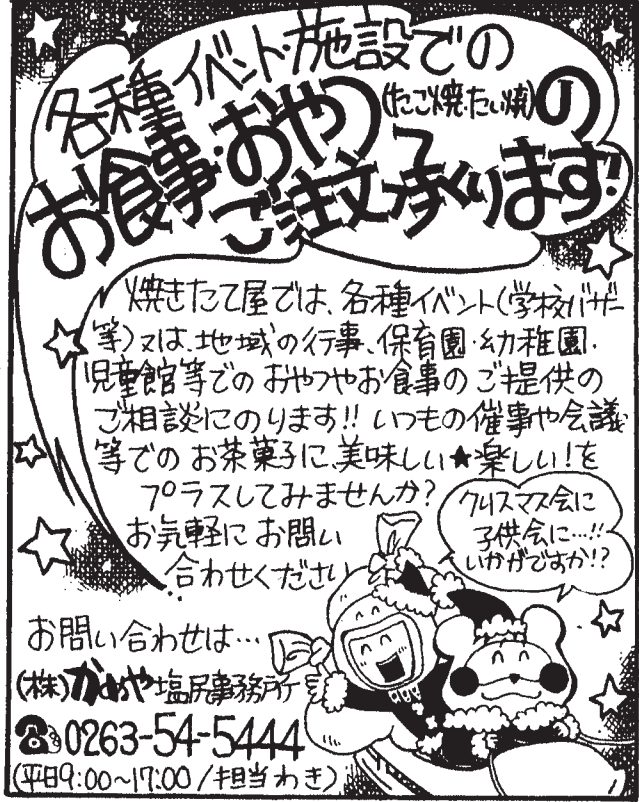 各種イベント・施設での
お食事・おやつ(たこ焼・たい焼)の
ご注文承ります!
焼きたて屋では、各種イベント(学校バザー
等)又は、地域の行事、保育園・幼稚園・
児童館等でのおやつやお食事のご提供の
ご相談にのります!!いつもの催事や会議
等でのお茶菓子に、美味しい★楽しい!を
プラスしてみませんか?
お気軽にお問い
合わせください。
クリスマス会に
子供会に…!!
いかがですか!?
お問い合わせは…
(株)かめや塩尻事務所
☎0263-54-5444
(平日9:00~17:00/担当わき)